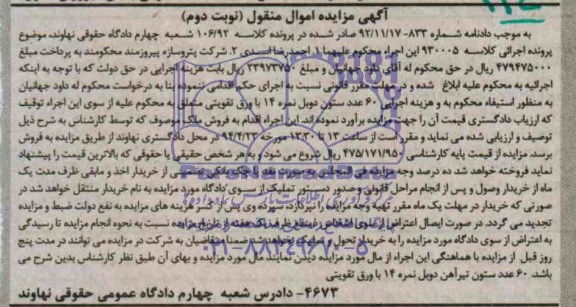 آگهی مزایده اموال منقول (نوبت دوم)
به موجب دادنامه شماره ۸۳۳-۹۲/۱۱/۱۷ صادر شده در پرونده کلاسه ۱۰۶/۹۲ شعبه چهارم دادگاه حقوقی نهاوند، موضوع
پرونده اجرائی کلاسه ۹۳۰۰۰۵ این اجراء محکوم علیهما ۱. احمدرضا اسدی ۲. شرکت پتروسازه پیروزمند محکومند به پرداخت مبلغ
۴۷۹۴۷۵۰۰۰ ریال در حق محکوم له آقای داود جهانیان و مبلغ ۲۳۹۷۳۷۵۰ ریال بابت هزینه اجرایی در حق دولت که با توجه به اینکه
اجرائیه به محکوم علیه ابلاغ شده و در مهلت مقرر قانونی نسبت به اجرای حکم اقدامی ننموده بنا به درخواست محکوم له داود جهانیان
به منظور استیفاء محکوم به و هزینه اجرایی ۶۰ عدد ستون دوبل نمره ۱۴ با ورق تقویتی متعلق به محکوم علیه از سوی این اجراء توقیف
که ارزیاب دادگستری قیمت آن را جهت مزایده برآورد نموده‌اند. این اجراء اقدام به فروش ملک موصوف که توسط کارشناس به شرح ذیل
توصیف و ارزیابی شده می نماید و مقرر است از ساعت ۱۳ تا ۱۳:۳۰ مورخه ۹۴/۴/۲۳ در محل دادگستری نهاوند از طریق مزایده به فروش
برسد. مزایده از قیمت پایه کارشناسی ۴۷۵/۱۷۱/۹۵۰ ریال شروع می شود و به هر شخص حقیقی یا حقوقی که بالاترین قیمت را پیشنهاد
نماید فروخته خواهد شد ده درصد وجه مزایده فی المجلس از خریدار اخذ و مابقی ظرف مدت یک
ماه از خریدار وصول و پس از انجام مراحل قانونی و صدور دستور تملیک از سوی دادگاه مورد مزایده به نام خریدار منتقل خواهد شد در
صورتی که خریدار در مهلت یک ماه مقرر بقیه وجه مزایده را نپردازد سپرده وی پس از کسر هزینه های مزایده به نفع دولت ضبط و مزایده
تجدید می گردد. در صورت ایصال اعتراض از سوی اشخاص ذینفع ظرف یک هفته از تاریخ مزایده نسبت به نحوه انجام مزایده تا رسیدگی
به اعتراض از سوی دادگاه مورد مزایده را به خریدار تحویل نخواهند داد. ضمنا متقاضیان به شرکت در مزایده می توانند در مدت پنج
روز قبل از مزایده با هماهنگی این اجراء از مال مورد مزایده دیدن نمایند مال مورد مزایده و بهای آن طبق نظر کارشناس بدین شرح می
باشد. ۶۰ عدد ستون تیرآهن دوبل نمره ۱۴ با ورق تقویتی
۴۶۷۳- دادرس شعبه چهارم دادگاه عمومی حقوقی نهاوند
۰۲۱-۸۸۳۴۹۶۷۰-۵